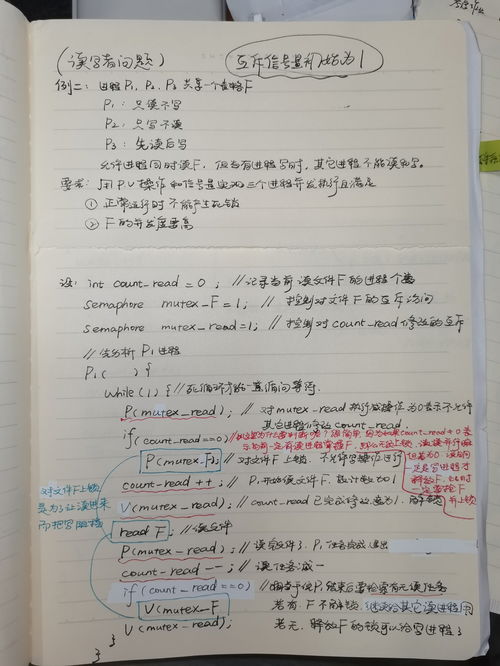 (读写者问题) 互斥信号量初始为1
例二: 进程 P₁、P₂、P₃ 共享一个表格F
P₁: 只读不写
P₂: 只写不读
P₃: 先读后写
允许进程同时读F, 但当有进程写时, 其它进程不能读和写。
要求: 用PV操作和信号量实现三个进程并发执行且满足
① 正常运行时不能产生死锁
② F的并发度要高
设: int count_read = 0; //记录当前读文件F的进程个数
semaphore mutex_F = 1; // 控制对文件F的互斥访问
semaphore mutex_read = 1; // 控制对count_read修改的互斥
//先分析P₁进程
P₁( ) {
while(1) { //死循环 一直循问等待.
P(mutex_read); // 对mutex_read执行减操作为0表示不允许
其它进程修改count_read
if(count_read==0) //
P(mutex_F); // 对文件F上锁, 不允许写操作进行
count_read ++; // P₁开始读文件F, 数计数加1
V(mutex_read); //count_read已完成修改 为1, 解锁
read F; //读文件
P(mutex_read); //读完文件了, P₁任务完成退出
count_read --; // 读任务减一
if (count_read ==0) // P₁结束后要检索有无读任务
V(mutex_F 若有, F不解锁, 其它读进程用
V(mutex_read); 若无, 解放F的锁可以给写进程
}
}
对文件F上锁
是为了让读进来
而把写阻挡